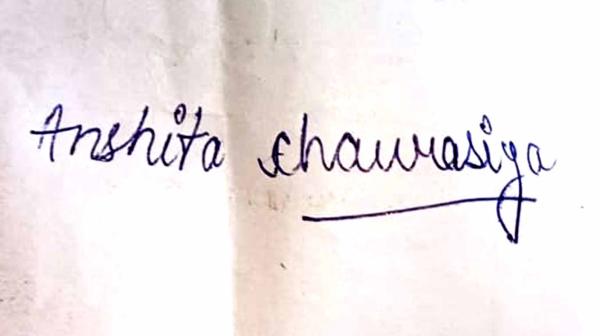 Anshita Chaurasiya